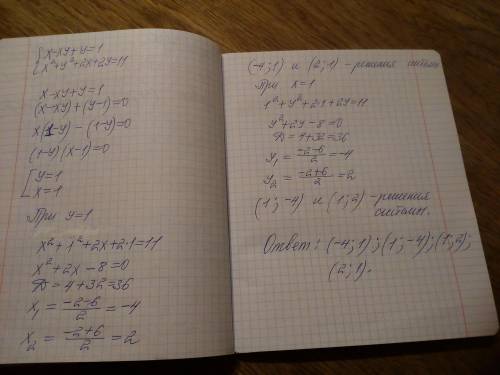 {x-xy+y=1
{x²+y²+2x+2y=11
x-xy+y=1
(x-xy)+(y-1)=0
x(1-y)-(1-y)=0
(1-y)(x-1)=0
[y=1
[x=1
При y=1
x²+1²+2x+2·1=11
x²+2x-8=0
D=4+32=36
x₁ = (-2-6)/2 = -4
x₂ = (-2+6)/2 = 2
(-4;1) и (2;1) - решения системы
При x=1
1²+y²+2·1+2y=11
y²+2y-8=0
D=4+32=36
y₁ = (-2-6)/2 = -4
y₂ = (-2+6)/2 = 2
(1;-4) и (1;2) - решения
системы.
Ответ: (-4;1); (1;-4); (1;2);
(2;1).